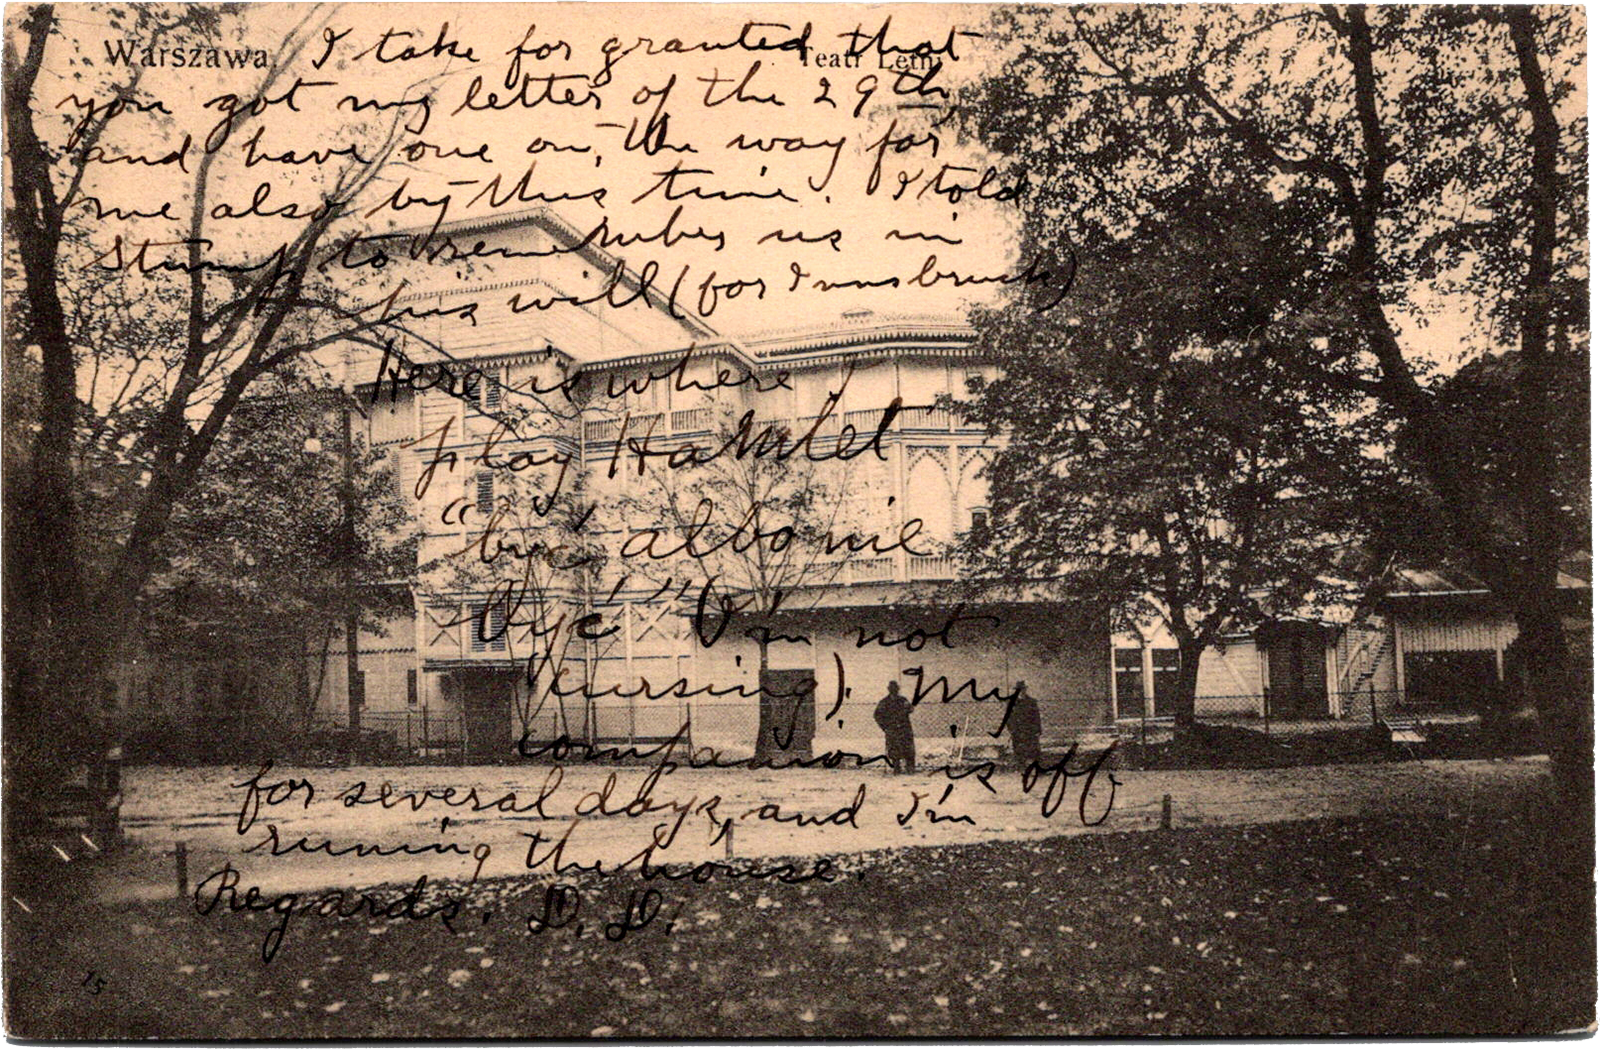 Warszawa. Teatr Letni
I take for granted that
you got my letter of the 29th,
and have one on, the way for
me also by this time. I told
Stump to remember us in
his will (for Innsbruck)
Here is where I
play Hamlet
"być, albo nie
być" (I'm not
cursing). My
companion is off
for several days, and I'm
runing the house.
Regards. D. D.
15